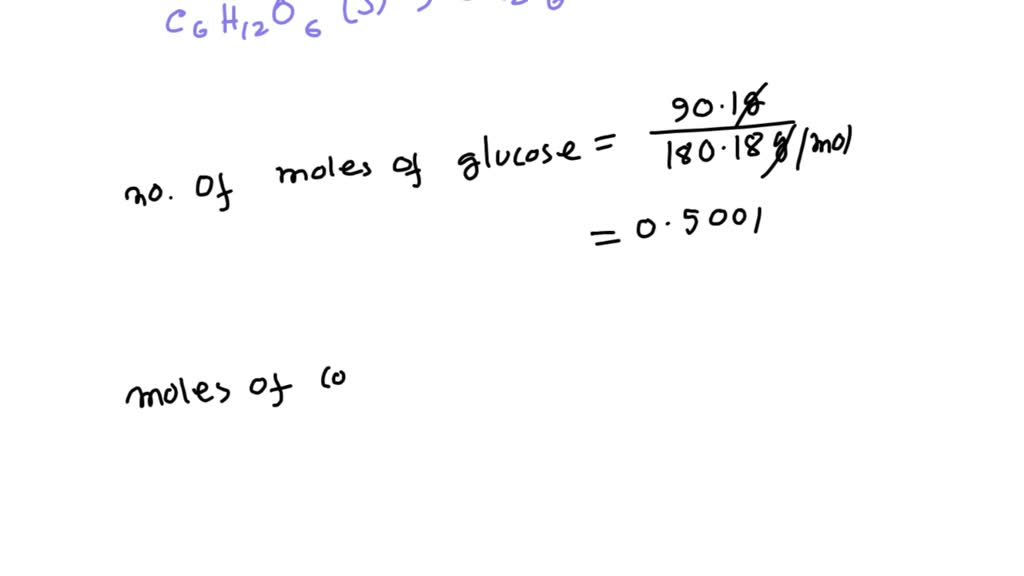 C6H12O6 (s)
no. of moles of glucose = 90.1g / 180.18 g/mol
= 0.5001
moles of co